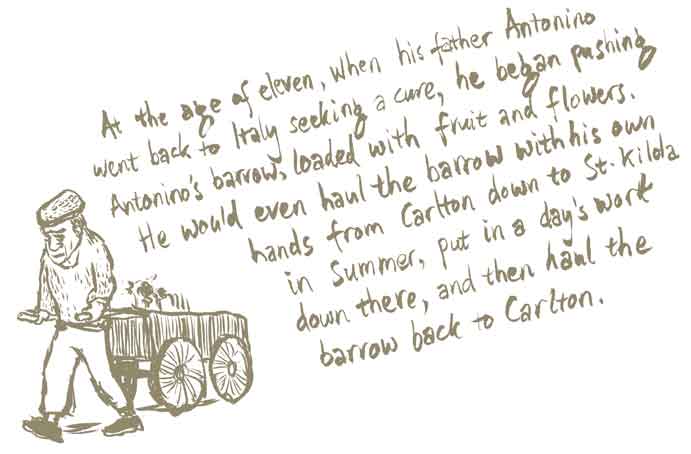 At the age of eleven, when his father Antonino
went back to Italy seeking a cure, he began pushing
Antonino's barrow, loaded with fruit and flowers.
He would even haul the barrow with his own
hands from Carlton down to St. Kilda
in Summer, put in a day's work
down there, and then haul the
barrow back to Carlton.